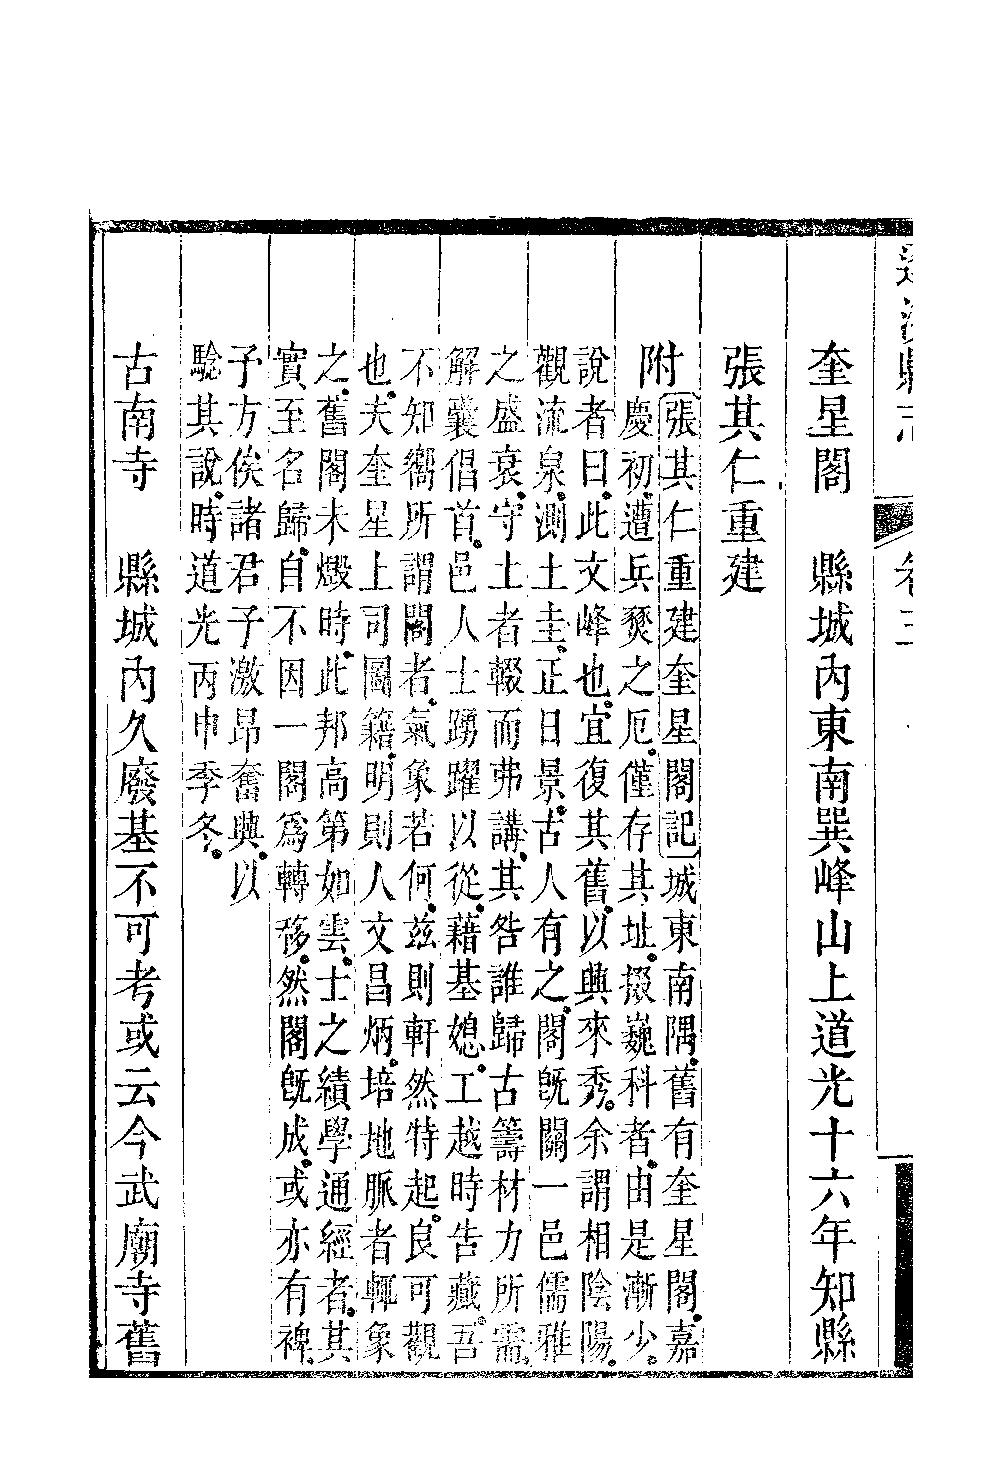 縣
卷三
奎星閣　縣城內東南巽峰山上道光十六年知縣
張其仁重建
附張其仁重建奎星閣記城東南隅舊有奎星閣嘉
慶初遭兵燹之厄僅存其址掇巍科者由是漸少
說者曰此文峰也宜復其舊以興來秀余謂相陰陽
觀流泉測土圭正日景古人有之閣旣關一邑儒雅
之盛衰守土者輟而弗講其咎誰歸古籌材力所需
解囊倡首邑人士踴躍以從藉基媳工越時告藏吾
不知嚮所謂閣者氣象若何茲則軒然特起良可觀
也夫奎星上司圖籍明則人文昌炳培地脈者輒象
之舊閣未燬時此邦高第如雲士之績學通經者其
實至名歸自不因一閣爲轉移然閣旣成或亦有裨
予方俟諸君子激昂奮興以
騐其說時道光丙申季冬
古南寺　縣城內久廢基不可考或云今武廟寺舊